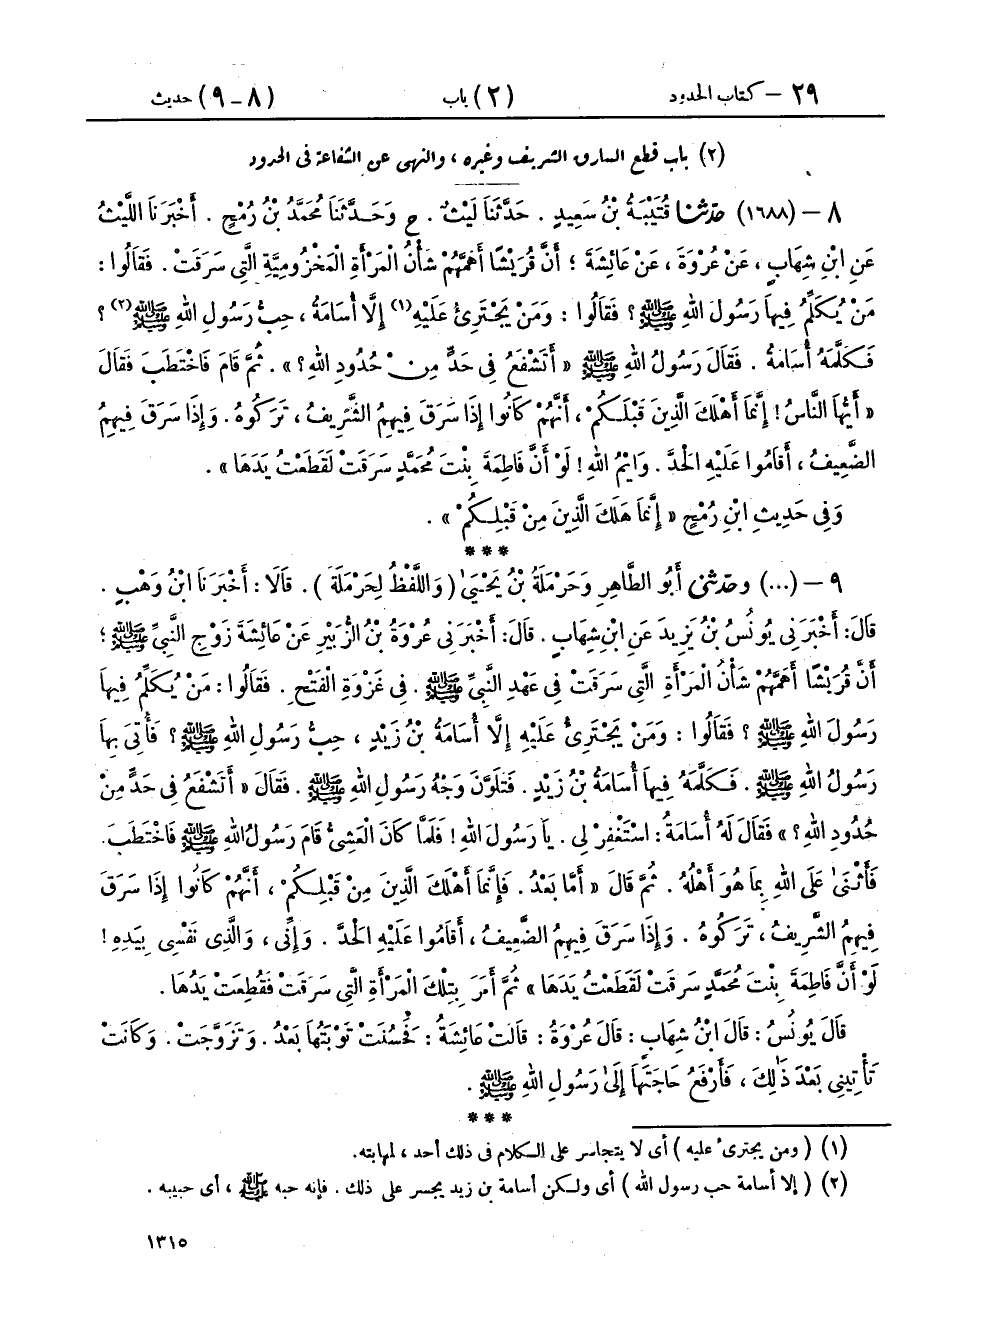 ٢٩ – كتاب الحدود (٢) باب (٨ – ٩) حديث
(٢) باب قطع السارق الشريف وغيره ، والنهى عن الشفاعة فى الحدود
٨ – (١٦٨٨) حَدَّثَنَا قُتَيْبَةُ بْنُ سَعِيدٍ . حَدَّثَنَا لَيْثٌ . ح وَحَدَّثَنَا مُحَمَّدُ بْنُ رُمْحٍ . أَخْبَرَنَا اللَّيْثُ
عَنِ ابْنِ شِهَابٍ ، عَنْ عُرْوَةَ ، عَنْ عَائِشَةَ ؛ أَنَّ قُرَيْشًا أَهَمَّهُمْ شَأْنُ الْمَرْأَةِ الْمَخْزُومِيَّةِ الَّتِي سَرَقَتْ . فَقَالُوا :
مَنْ يُكَلِّمُ فِيهَا رَسُولَ اللهِ ﷺ ؟ فَقَالُوا : وَمَنْ يَجْتَرِئُ عَلَيْهِ(١) إِلَّا أُسَامَةُ ، حِبُّ رَسُولِ اللهِ ﷺ(٢) ؟
فَكَلَّمَهُ أُسَامَةُ . فَقَالَ رَسُولُ اللهِ ﷺ « أَتَشْفَعُ فِي حَدٍّ مِنْ حُدُودِ اللهِ ؟ » . ثُمَّ قَامَ فَاخْتَطَبَ فَقَالَ
« أَيُّهَا النَّاسُ ! إِنَّمَا أَهْلَكَ الَّذِينَ قَبْلَكُمْ ، أَنَّهُمْ كَانُوا إِذَا سَرَقَ فِيهِمُ الشَّرِيفُ ، تَرَكُوهُ . وَإِذَا سَرَقَ فِيهِمُ
الضَّعِيفُ ، أَقَامُوا عَلَيْهِ الْحَدَّ . وَايْمُ اللهِ ! لَوْ أَنَّ فَاطِمَةَ بِنْتَ مُحَمَّدٍ سَرَقَتْ لَقَطَعْتُ يَدَهَا » .
وَفِي حَدِيثِ ابْنِ رُمْحٍ « إِنَّمَا هَلَكَ الَّذِينَ مِنْ قَبْلِكُمْ » .
***
٩ – (...) وحَدَّثَنِي أَبُو الطَّاهِرِ وَحَرْمَلَةُ بْنُ يَحْيَىٰ ( وَاللَّفْظُ لِحَرْمَلَةَ ) . قَالَا : أَخْبَرَنَا ابْنُ وَهْبٍ .
قَالَ : أَخْبَرَنِي يُونُسُ بْنُ يَزِيدَ عَنِ ابْنِ شِهَابٍ . قَالَ : أَخْبَرَنِي عُرْوَةُ بْنُ الزُّبَيْرِ عَنْ عَائِشَةَ زَوْجِ النَّبِيِّ ﷺ ؛
أَنَّ قُرَيْشًا أَهَمَّهُمْ شَأْنُ الْمَرْأَةِ الَّتِي سَرَقَتْ فِي عَهْدِ النَّبِيِّ ﷺ . فِي غَزْوَةِ الْفَتْحِ . فَقَالُوا : مَنْ يُكَلِّمُ فِيهَا
رَسُولَ اللهِ ﷺ ؟ فَقَالُوا : وَمَنْ يَجْتَرِئُ عَلَيْهِ إِلَّا أُسَامَةُ بْنُ زَيْدٍ ، حِبُّ رَسُولِ اللهِ ﷺ ؟ فَأُتِيَ بِهَا
رَسُولُ اللهِ ﷺ . فَكَلَّمَهُ فِيهَا أُسَامَةُ بْنُ زَيْدٍ . فَتَلَوَّنَ وَجْهُ رَسُولِ اللهِ ﷺ . فَقَالَ « أَتَشْفَعُ فِي حَدٍّ مِنْ
حُدُودِ اللهِ ؟ » فَقَالَ لَهُ أُسَامَةُ : اسْتَغْفِرْ لِي . يَا رَسُولَ اللهِ ! فَلَمَّا كَانَ الْعَشِيُّ قَامَ رَسُولُ اللهِ ﷺ فَاخْتَطَبَ .
فَأَثْنَىٰ عَلَى اللهِ بِمَا هُوَ أَهْلُهُ . ثُمَّ قَالَ « أَمَّا بَعْدُ . فَإِنَّمَا أَهْلَكَ الَّذِينَ مِنْ قَبْلِكُمْ ، أَنَّهُمْ كَانُوا إِذَا سَرَقَ
فِيهِمُ الشَّرِيفُ ، تَرَكُوهُ . وَإِذَا سَرَقَ فِيهِمُ الضَّعِيفُ ، أَقَامُوا عَلَيْهِ الْحَدَّ . وَإِنِّي ، وَالَّذِي نَفْسِي بِيَدِهِ !
لَوْ أَنَّ فَاطِمَةَ بِنْتَ مُحَمَّدٍ سَرَقَتْ لَقَطَعْتُ يَدَهَا » ثُمَّ أَمَرَ بِتِلْكَ الْمَرْأَةِ الَّتِي سَرَقَتْ فَقُطِعَتْ يَدُهَا .
قَالَ يُونُسُ : قَالَ ابْنُ شِهَابٍ : قَالَ عُرْوَةُ : قَالَتْ عَائِشَةُ : فَحَسُنَتْ تَوْبَتُهَا بَعْدُ . وَتَزَوَّجَتْ . وَكَانَتْ
تَأْتِينِي بَعْدَ ذَٰلِكَ ، فَأَرْفَعُ حَاجَتَهَا إِلَىٰ رَسُولِ اللهِ ﷺ .
***
(١) ( ومن يجترئ عليه ) أى لا يتجاسر على الكلام فى ذلك أحد ، لمهابته .
(٢) ( إلا أسامة حب رسول الله ) أى ولكن أسامة بن زيد يجسر على ذلك . فإنه حبه ﷺ ، أى حبيبه .
١٣١٥